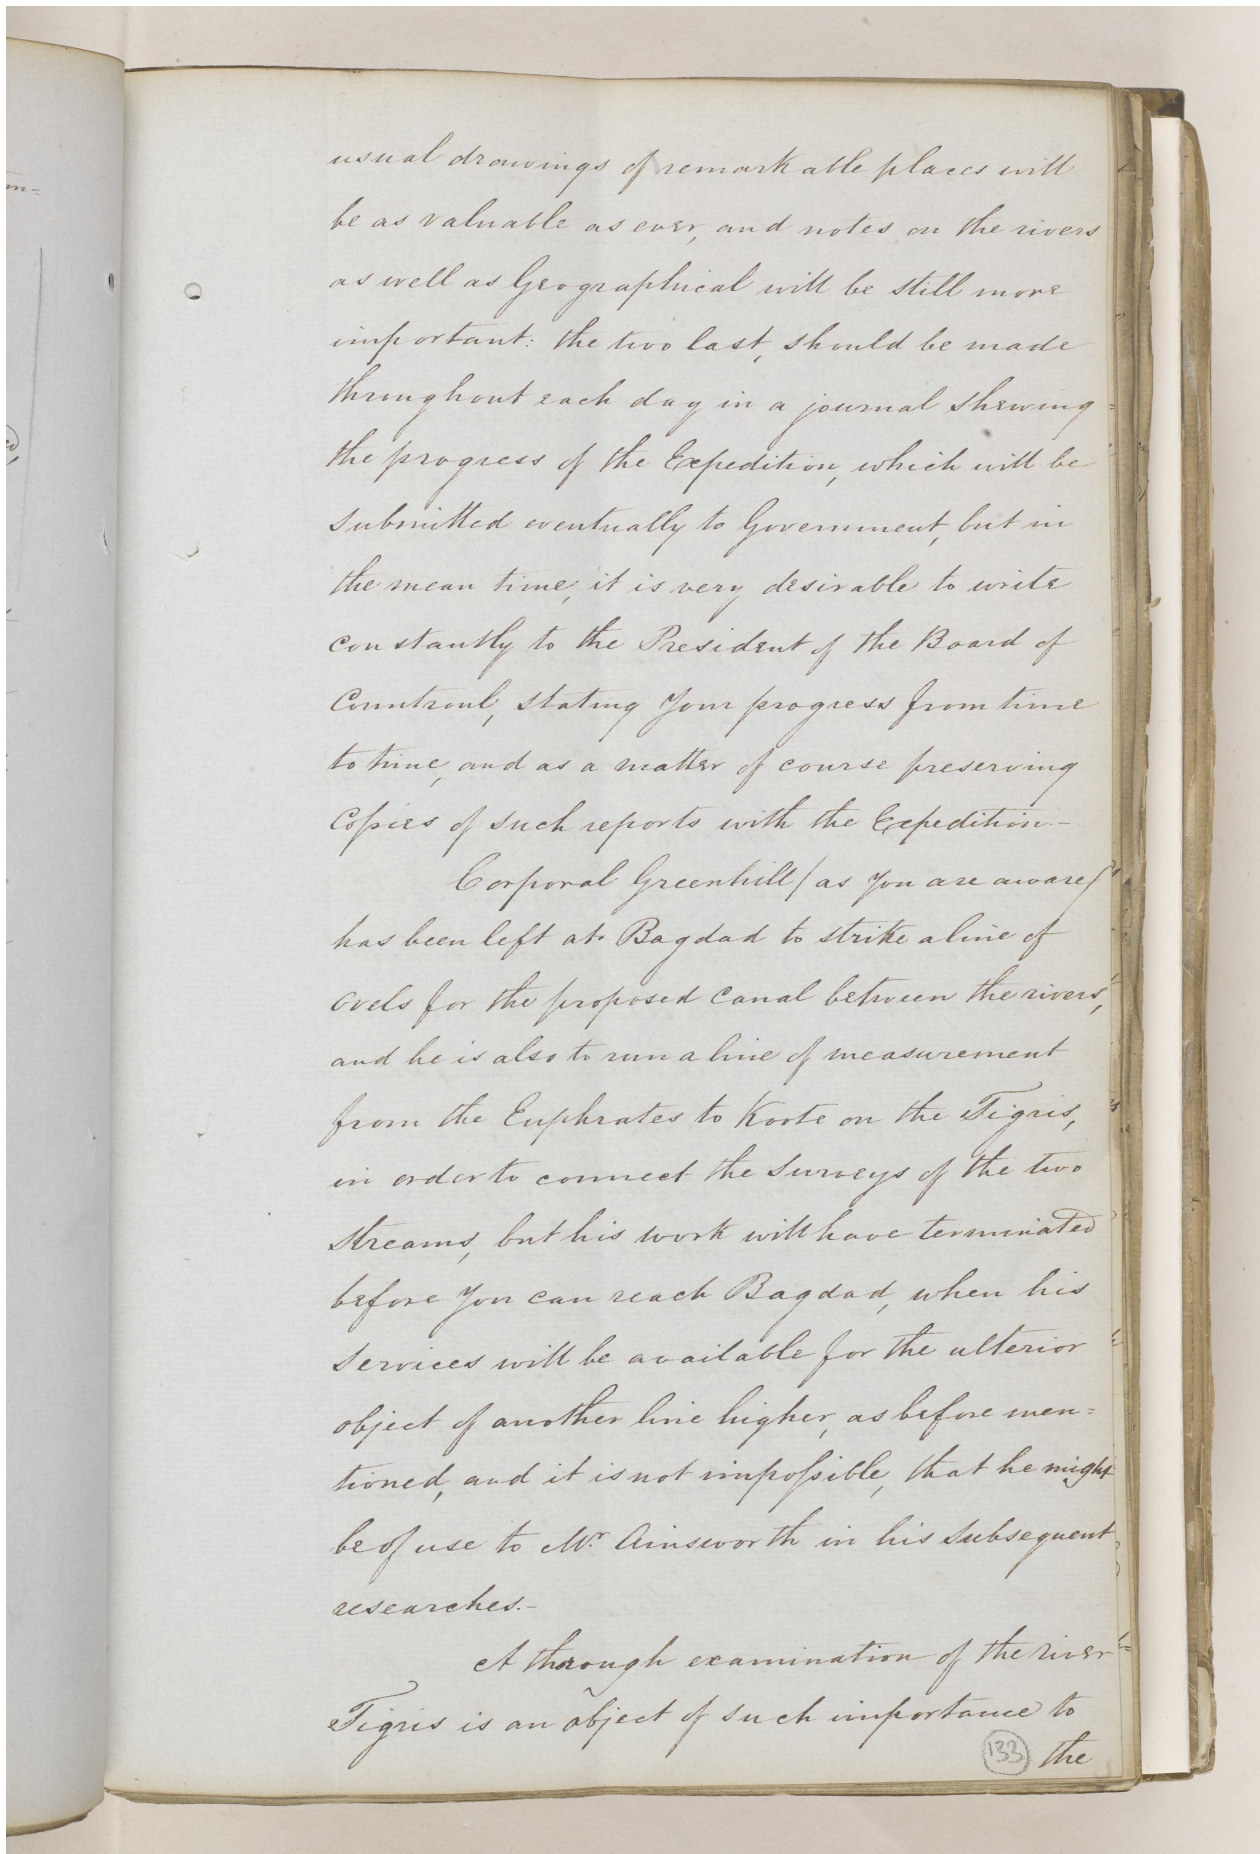 usual drawings of remarkable places will
be as valuable as ever, and notes on the rivers
as well as Geographical will be still more
important: the two last, should be made
throughout each day in a journal shewing
the progress of the Expedition, which will be
submitted eventually to Government, but in
the mean time, it is very desirable to write
constantly to the President of the Board of
Countroul, stating your progress from time
to time, and as a matter of course preserving
Copies of such reports with the Expedition -
Corporal Greenhill / as you are aware /
has been left at Bagdad to strike a line of
ovels for the proposed canal between the rivers,
and he is also to run a line of measurement
from the Euphrates to Koote on the Tigris,
in order to connect the surveys of the two
streams, but his work will have terminated
before you can reach Bagdad, when his
services will be available for the ulterior
object of another line higher, as before men=
tioned, and it is not impossible, that he might
be of use to Mr. Ainsworth in his subsequent
researches.-
A thorough examination of the river
Tigris is an object of such importance to
133 the